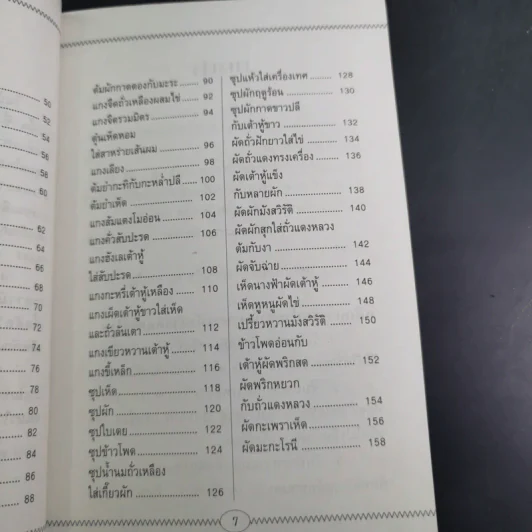 50
52
54
56
58
60
62
64
66
68
70
72
74
76
78
80
82
84
86
88
ต้มผักกาดดองกับมะระ ....... 90
แกงจืดถั่วเหลืองผสมไข่ ....... 92
แกงจืดรวมมิตร ....... 94
ตุ๋นเห็ดหอม
ใส่สาหร่ายเส้นผม ....... 96
แกงเลียง ....... 98
ต้มยำกะทิกับกะหล่ำปลี ....... 100
ต้มยำเห็ด ....... 102
แกงส้มแตงโมอ่อน ....... 104
แกงคั่วสับปะรด ....... 106
แกงฮังเลเต้าหู้
ใส่สับปะรด ....... 108
แกงกะหรี่เต้าหู้เหลือง ....... 110
แกงเผ็ดเต้าหู้ขาวใส่เห็ด
และถั่วลันเตา ....... 112
แกงเขียวหวานเต้าหู้ ....... 114
แกงขี้เหล็ก ....... 116
ซุปเห็ด ....... 118
ซุปผัก ....... 120
ซุปใบเตย ....... 122
ซุปข้าวโพด ....... 124
ซุปน้ำนมถั่วเหลือง
ใส่เกี๊ยวผัก ....... 126
ซุปแห้วใส่เครื่องเทศ ....... 128
ซุปผักฤดูร้อน ....... 130
ซุปผักกาดขาวปลี
กับเต้าหู้ขาว ....... 132
ผัดถั่วฝักยาวใส่ไข่ ....... 134
ผัดถั่วแดงทรงเครื่อง ....... 136
ผัดเต้าหู้แข็ง
กับหลายผัก ....... 138
ผัดผักมังสวิรัติ ....... 140
ผัดผักสุกใส่ถั่วแดงหลวง
ต้มกับงา ....... 142
ผัดจับฉ่าย ....... 144
เห็ดนางฟ้าผัดเต้าหู้ ....... 146
เห็ดหูหนูผัดไข่ ....... 148
เปรี้ยวหวานมังสวิรัติ ....... 150
ข้าวโพดอ่อนกับ
เต้าหู้ผัดพริกสด ....... 152
ผัดพริกหยวก
กับถั่วแดงหลวง ....... 154
ผัดกะเพราเห็ด ....... 156
ผัดมะกะโรนี ....... 158
7